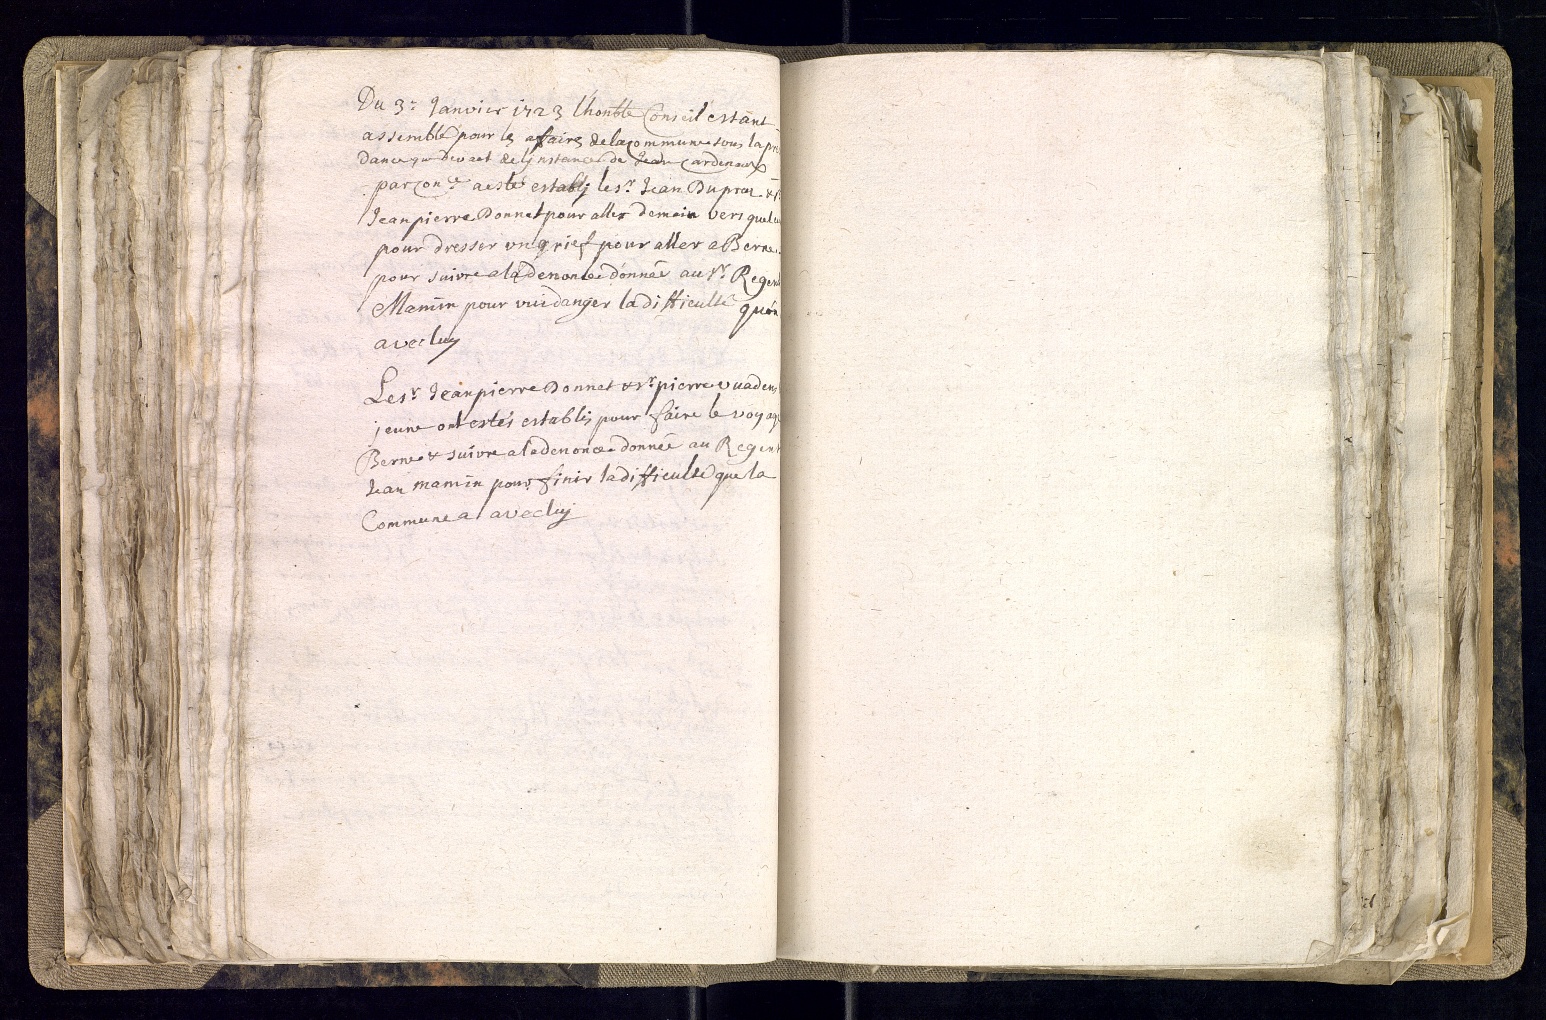 Du 3.e Janvier 1723 l'honble Conseil estant
assemblé pour les affaires de la Commune sous la pre
dance que devant de l'instance de Jean Cardenaux
par con a esté establi le Sr. Jean Dupraz &
Jean pierre Donnet pour aller demain vers quel
pour dresser un grief pour aller a Berne
pour suivre a la denonce donnée au Sr. Regent
Mamin pour vuidanger la difficulté quon
avec luy
Le Sr. Jean pierre Donnet & Sr. pierre vuadens
jeune ont estés establis pour faire le voyag
Berne & suivre a la denonce donnée au Regent
Jean mamin pour finir la difficulté que la
Commune a avec luy